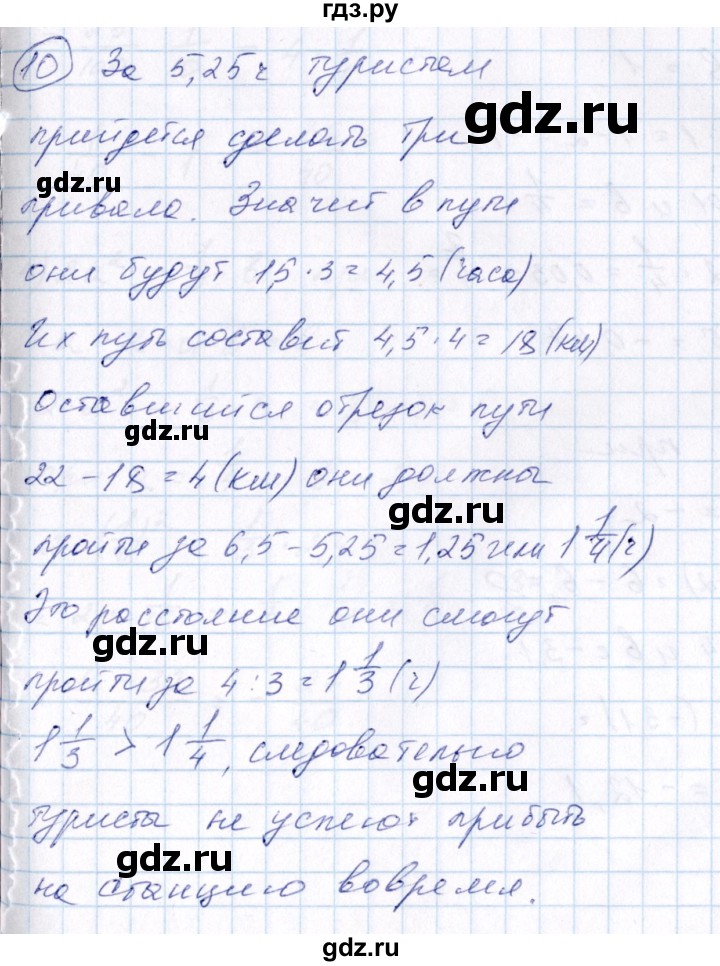 гдз.ру
10 За 5,25 ч туристам
прийдется сделать три
привала. Значит в пути
они будут 1,5 · 3 = 4,5 (часа)
Их путь составит 4,5 · 4 = 18 (км)
Оставшийся отрезок пути
22 - 18 = 4 (км) они должны
пройти за 6,5 - 5,25 = 1,25 или 1 1/4 (ч)
Это расстояние они смогут
пройти за 4 : 3 = 1 1/3 (ч)
1 1/3 > 1 1/4, следовательно
туристы не успеют прибыть
на станцию вовремя.
gdz.ru
gdz.ru
gdz.ru
gdz.ru
gdz.ru
gdz.ru
gdz.ru
gdz.ru
gdz.ru